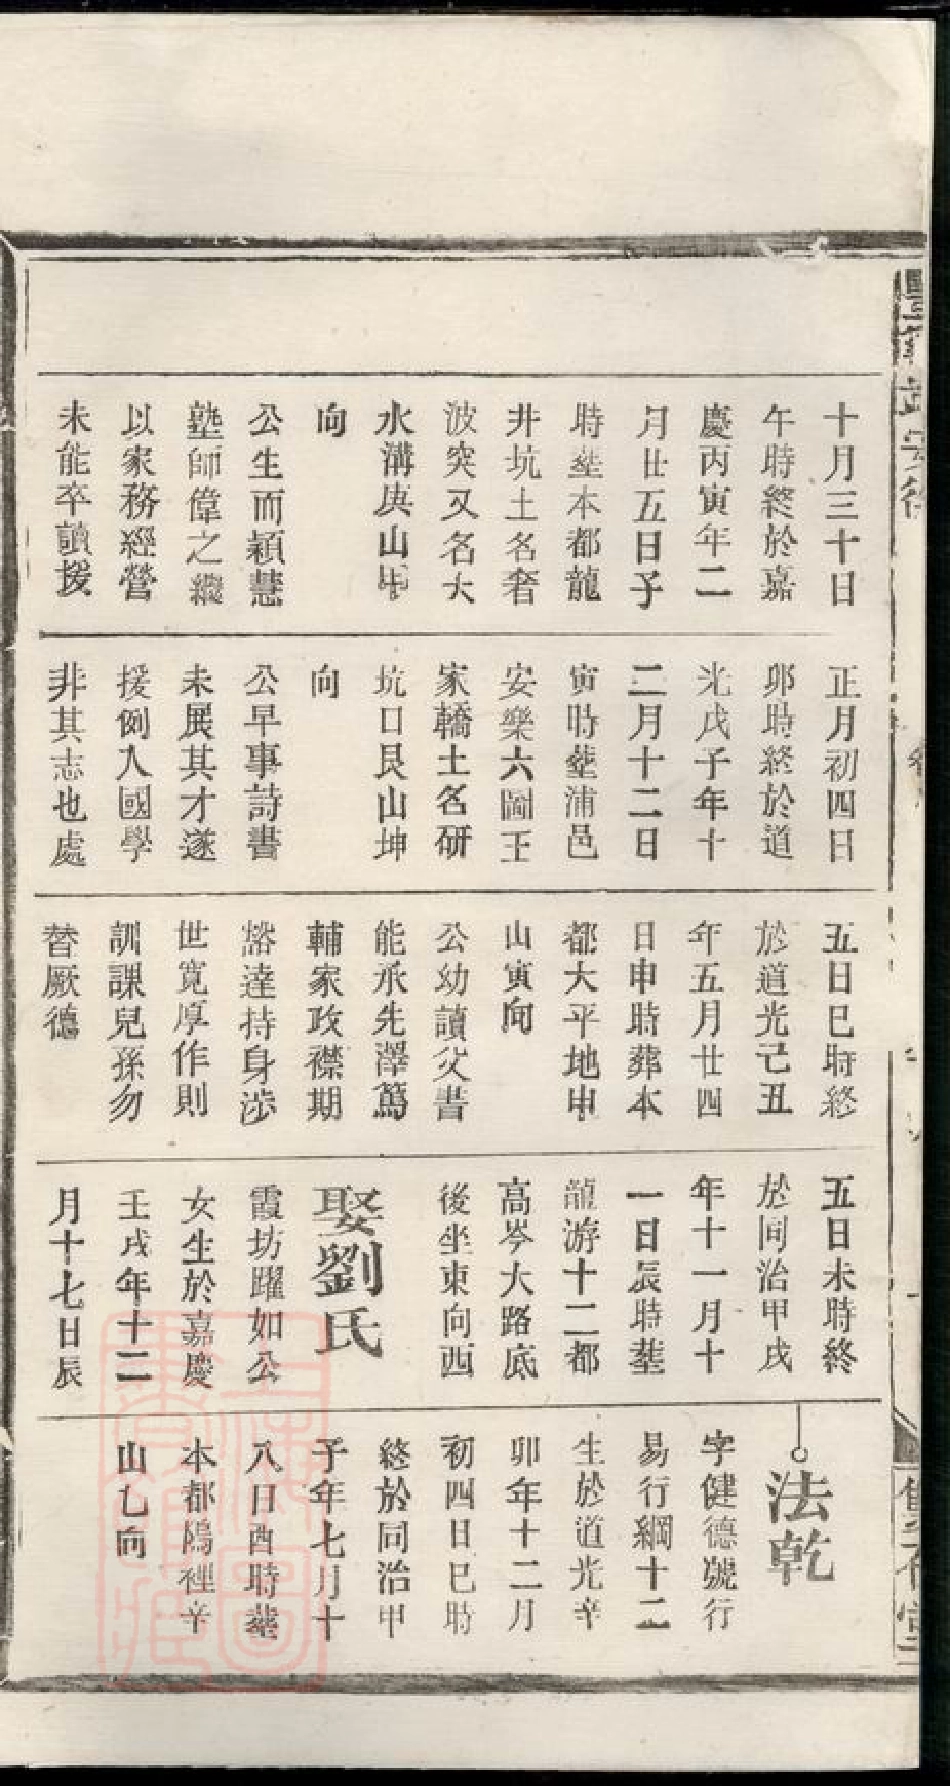 十月三十日
午時終於嘉
慶丙寅年二
月廿五日子
時塟本都龍
井坑土名奢
波突又名大
水溝庚山甲
向
公生而穎慧
塾師偉之纔
以家務經營
未能卒讀援
正月初四日
卯時終於道
光戊子年十
二月十二日
寅時塟浦邑
安樂六圖王
家轎土名研
坑口艮山坤
向
公早事詩書
未展其才遂
援例入國學
非其志也處
五日巳時終
於道光己丑
年五月廿四
日申時葬本
都大平地申
山寅向
公幼讀父書
能承先澤篤
輔家政襟期
豁達持身涉
世寬厚作則
訓課兒孫勿
替厥德
五日未時終
於同治甲戌
年十一月十
一日辰時塟
龍游十二都
高岑大路底
後坐東向西
娶劉氏
霞坊躍如公
女生於嘉慶
壬戌年十二
月十七日辰
法乾
字健德號行
易行綱十二
生於道光辛
卯年十二月
初四日巳時
終於同治甲
子年七月十
八日酉時塟
本都隖裡辛
山乙向